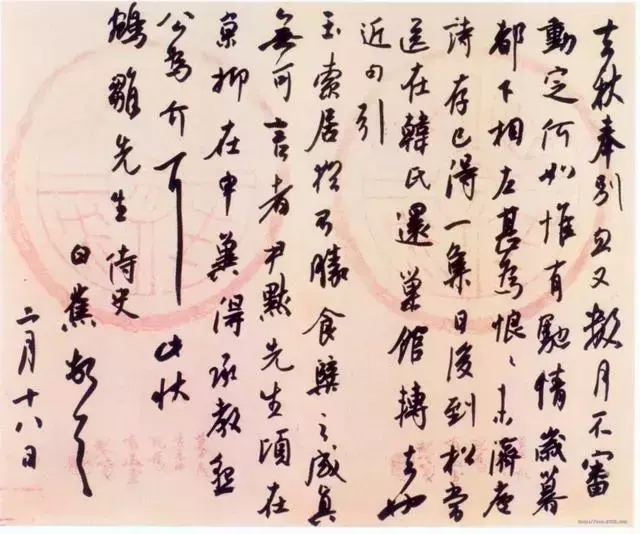 去秋奉別忽又數月不審
動定何如惟有馳情歲暮
都下相左甚為恨〻未濟廬
詩存已得一集日後到松當
送在韓氏還巢館轉去如
近引
玉索居殊不勝食蘗之感真
無可言者尹默先生頃在
京抑在申冀得承教懇
公為介 此狀
鵷雛先生侍史
白蕉頓首
二月十八日